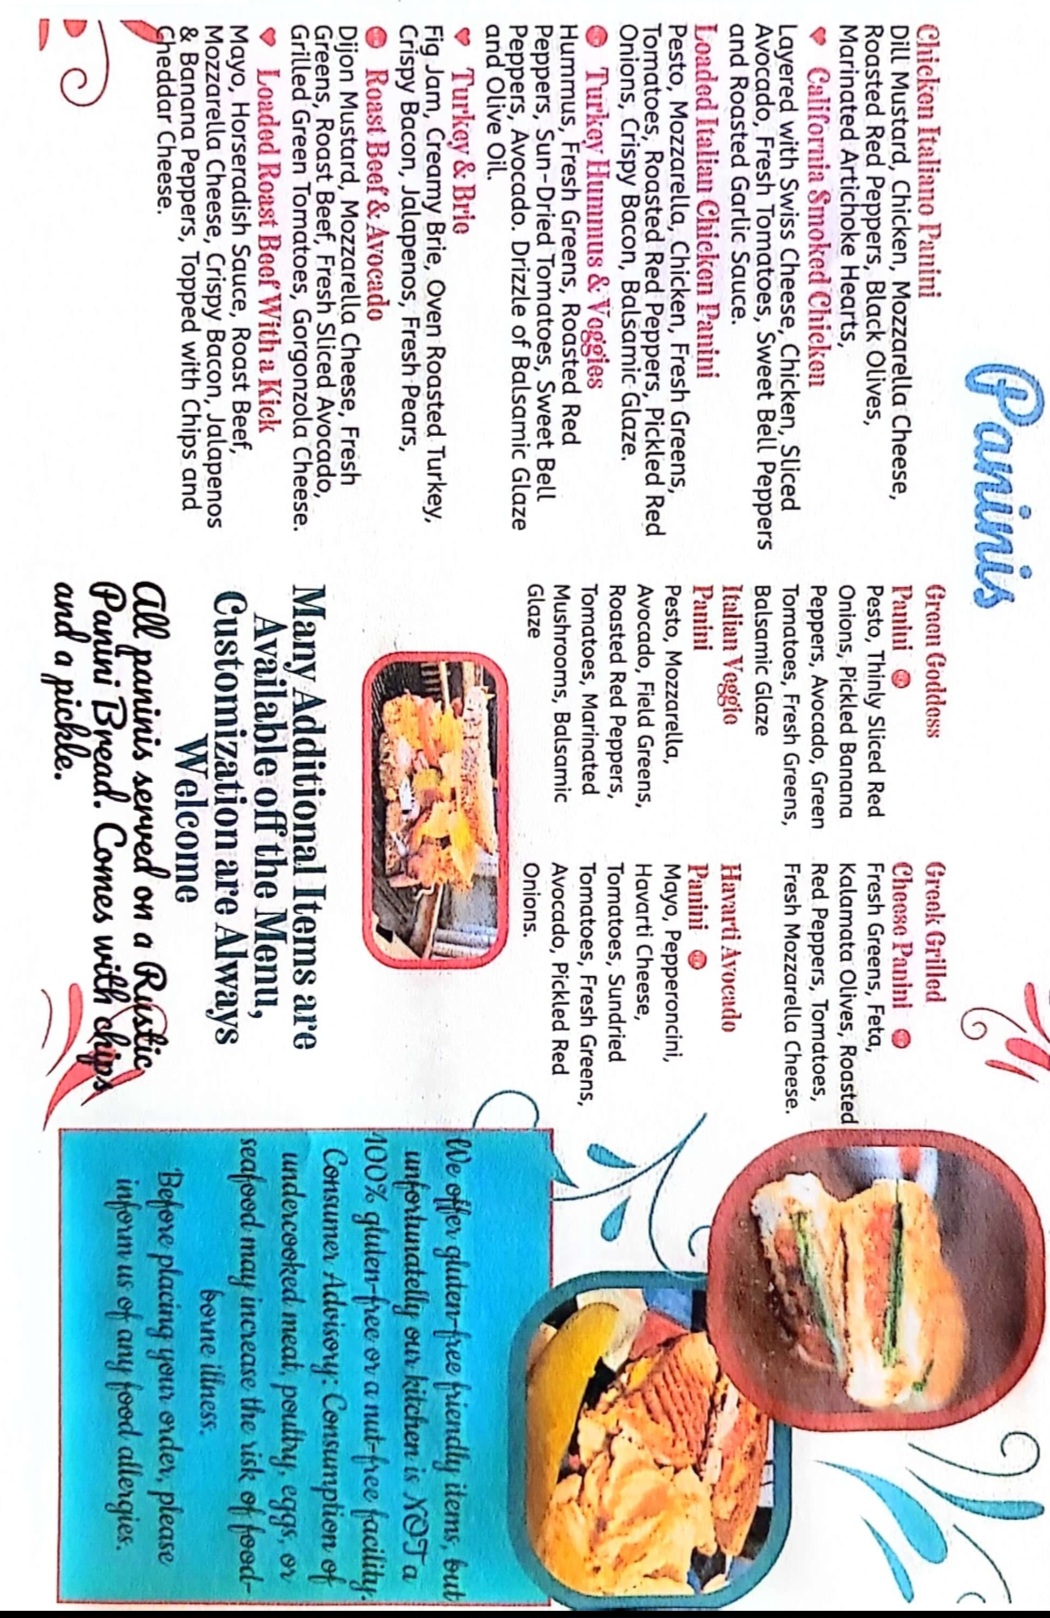 Paninis
Chicken Italiano Panini
Dill Mustard, Chicken, Mozzarella Cheese,
Roasted Red Peppers, Black Olives,
Marinated Artichoke Hearts,
California Smoked Chicken
Layered with Swiss Cheese, Chicken, Sliced
Avocado, Fresh Tomatoes, Sweet Bell Peppers
and Roasted Garlic Sauce.
Loaded Italian Chicken Panini
Pesto, Mozzarella, Chicken, Fresh Greens,
Tomatoes, Roasted Red Peppers, Pickled Red
Onions, Crispy Bacon, Balsamic Glaze.
Turkey Hummus & Veggies
Hummus, Fresh Greens, Roasted Red
Peppers, Sun-Dried Tomatoes, Sweet Bell
Peppers, Avocado. Drizzle of Balsamic Glaze
and Olive Oil.
Turkey & Brie
Fig Jam, Creamy Brie, Oven Roasted Turkey,
Crispy Bacon, Jalapenos, Fresh Pears,
Roast Beef & Avocado
Dijon Mustard, Mozzarella Cheese, Fresh
Greens, Roast Beef, Fresh Sliced Avocado,
Grilled Green Tomatoes, Gorgonzola Cheese.
Loaded Roast Beef With a Kick
Mayo, Horseradish Sauce, Roast Beef,
Mozzarella Cheese, Crispy Bacon, Jalapenos
& Banana Peppers, Topped with Chips and
Cheddar Cheese.
Green Goddess
Panini
Pesto, Thinly Sliced Red
Onions, Pickled Banana
Peppers, Avocado, Green
Tomatoes, Fresh Greens,
Balsamic Glaze
Italian Veggie
Panini
Pesto, Mozzarella,
Avocado, Field Greens,
Roasted Red Peppers,
Tomatoes, Marinated
Mushrooms, Balsamic
Glaze
Greek Grilled
Cheese Panini
Fresh Greens, Feta,
Kalamata Olives, Roasted
Red Peppers, Tomatoes,
Fresh Mozzarella Cheese.
Havarti Avocado
Panini
Mayo, Pepperoncini,
Havarti Cheese,
Tomatoes, Sundried
Tomatoes, Fresh Greens,
Avocado, Pickled Red
Onions.
Many Additional Items are
Available off the Menu,
Customization are Always
Welcome
All paninis served on a Rustic
Panini Bread. Comes with chips
and a pickle.
We offer gluten-free friendly items, but
unfortunatelly our kitchen is NOT a
100% gluten-free or a nut-free facility.
Consumer Advisory: Consumption of
undercooked meat, poultry, eggs, or
seafood may increase the risk of food-
borne illness.
Before placing your order, please
inform us of any food allergies.